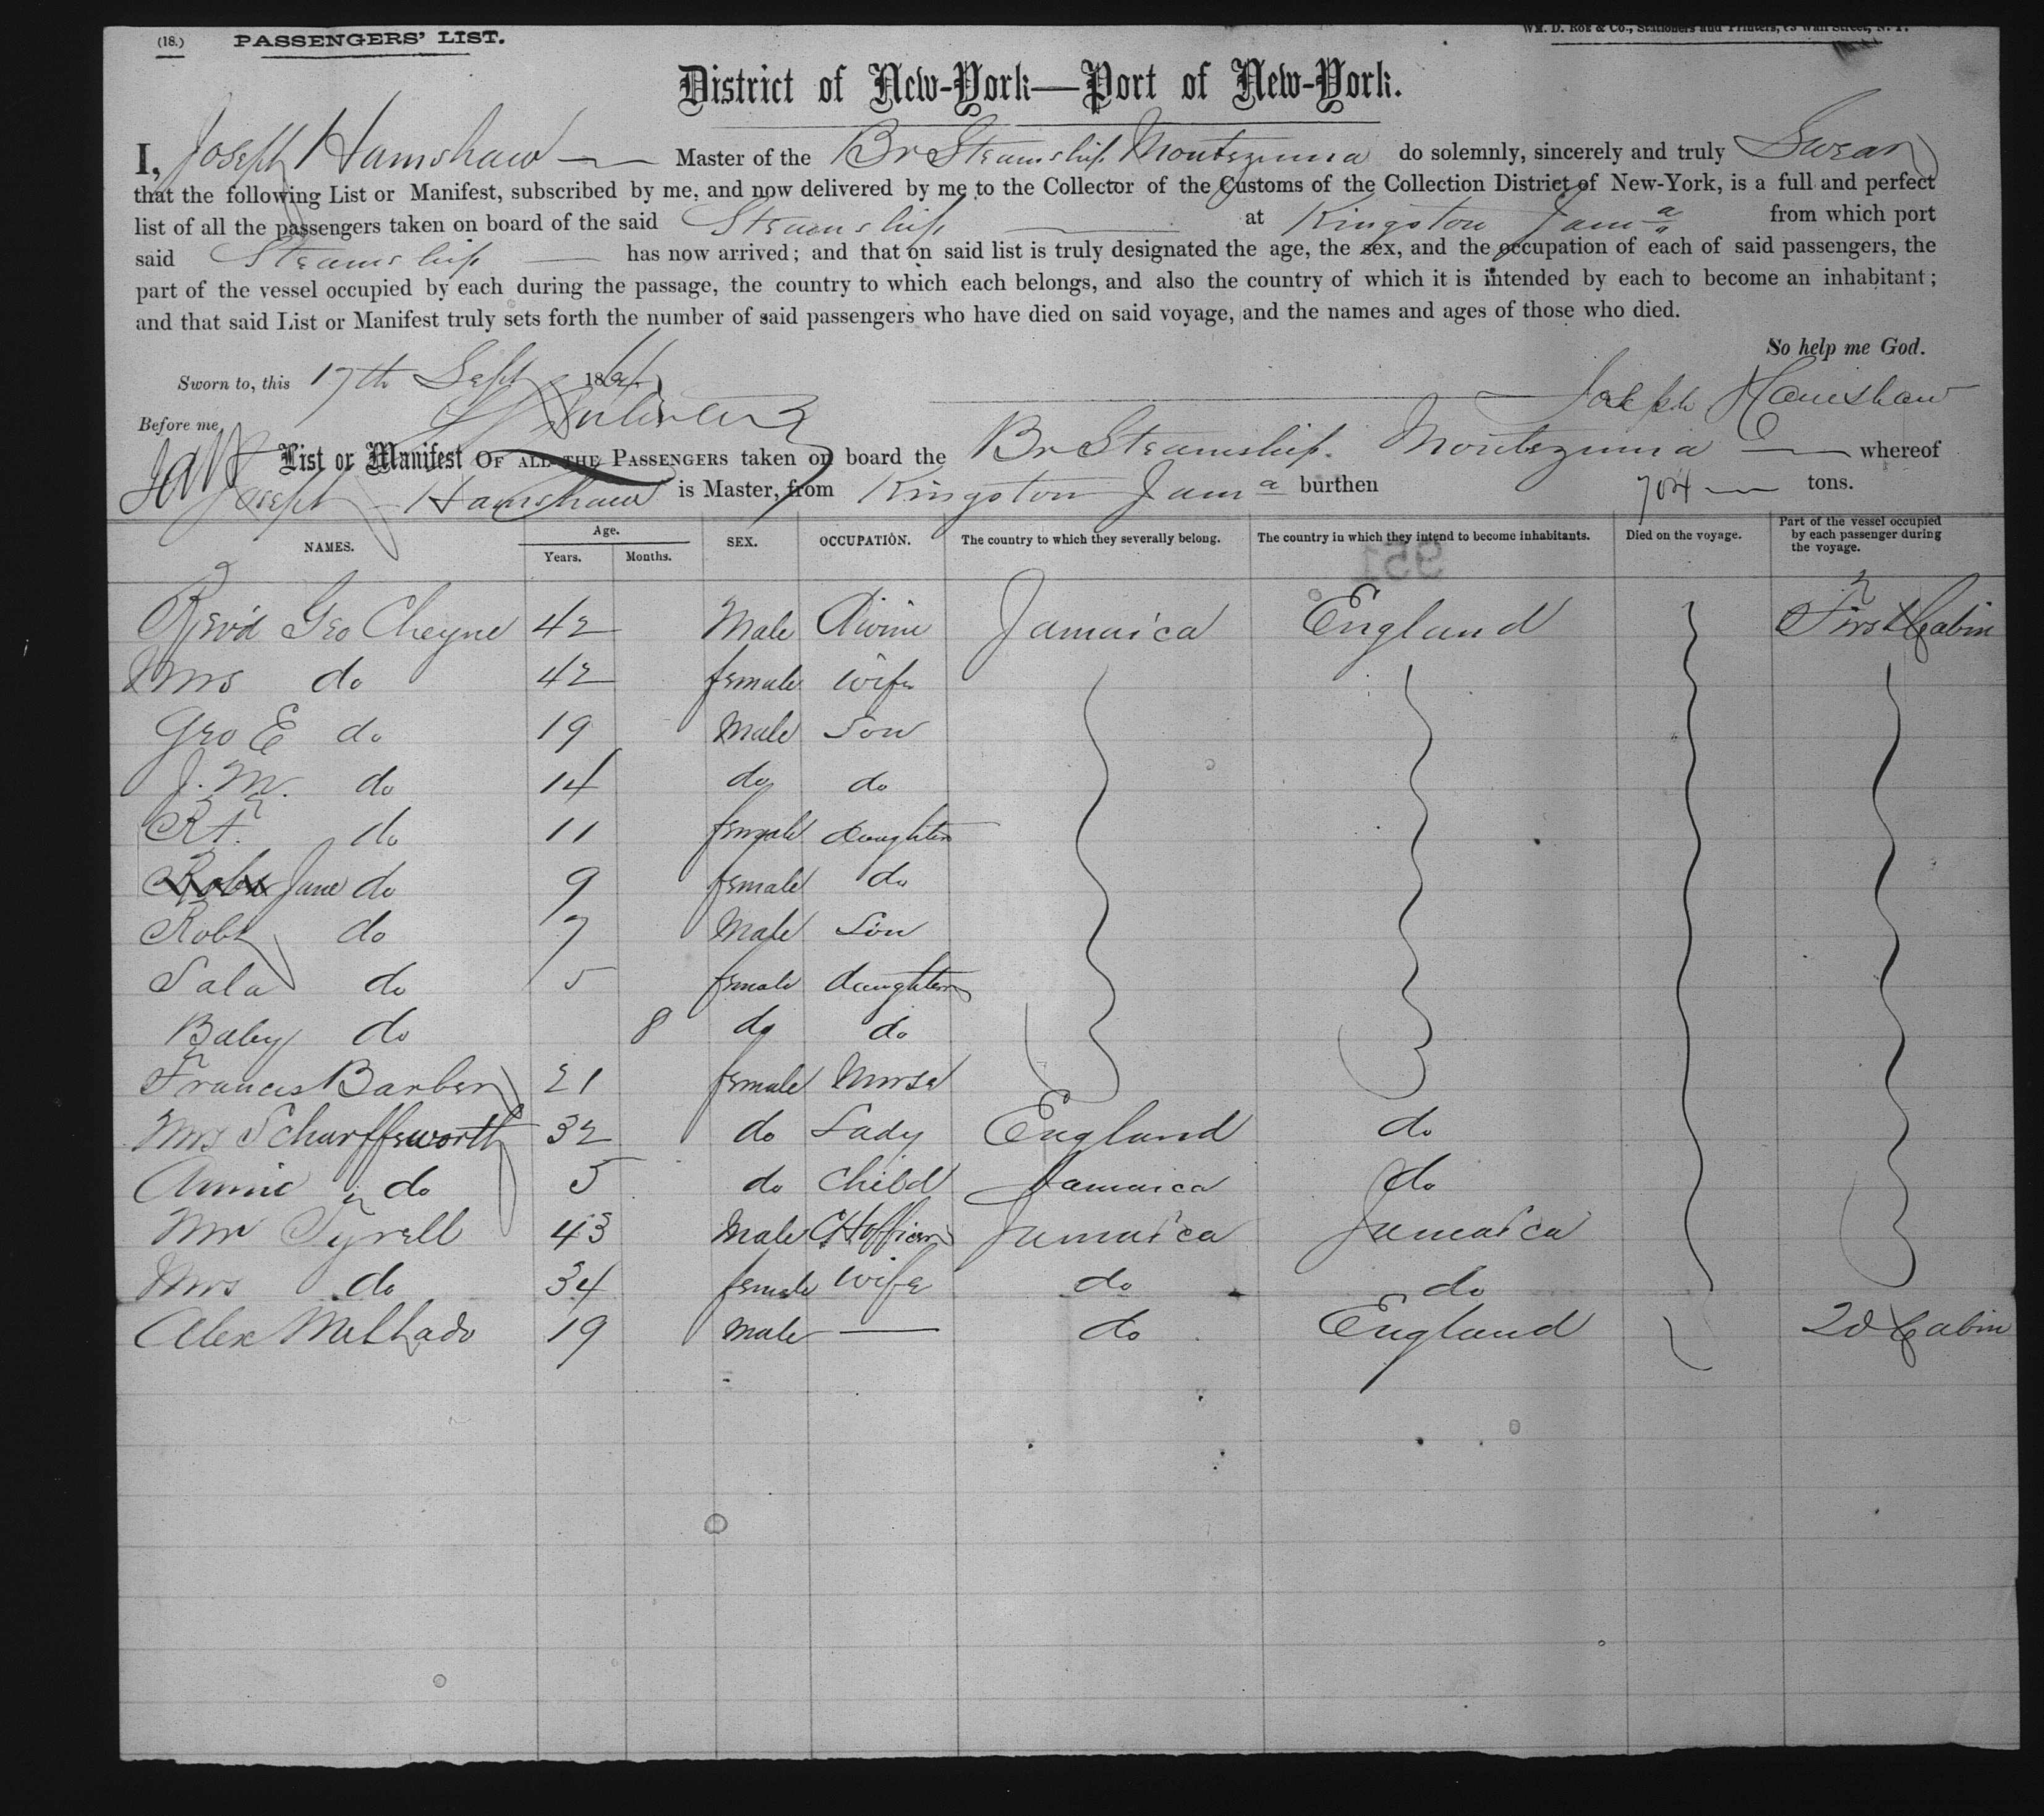 (18.) PASSENGERS' LIST.
Wm. D. Roe & Co., Stationers and Printers, Wall Street, N. Y.
District of New-York—Port of New-York.
I, Joseph Hamshaw — Master of the Br Steamship Montezuma do solemnly, sincerely and truly Swear
that the following List or Manifest, subscribed by me, and now delivered by me to the Collector of the Customs of the Collection District of New-York, is a full and perfect
list of all the passengers taken on board of the said Steamship — at Kingston Jama from which port
said Steamship — has now arrived; and that on said list is truly designated the age, the sex, and the occupation of each of said passengers, the
part of the vessel occupied by each during the passage, the country to which each belongs, and also the country of which it is intended by each to become an inhabitant;
and that said List or Manifest truly sets forth the number of said passengers who have died on said voyage, and the names and ages of those who died.
So help me God.
Sworn to, this 17th Sept 186
Joseph Hamshaw
Before me,
List or Manifest OF ALL THE PASSENGERS taken on board the Br Steamship Montezuma — whereof
Joseph Hamshaw is Master, from Kingston Jama burthen 704 — tons.
NAMES. Age. Years. Months. SEX. OCCUPATION. The country to which they severally belong. The country in which they intend to become inhabitants. Died on the voyage. Part of the vessel occupied by each passenger during the voyage.
Revd Geo Cheyne 42 Male Divine Jamaica England First Cabin
Mrs do 42 female wife
Geo E do 19 Male Son
J. M. do 14 do do
do 11 female daughter
Jane do 9 female do
Robt do 7 Male Son
Sala do 5 female daughter
Baby do 8 do do
Francis Barber 21 female Nurse
Mrs Scharffsworth 32 do Lady England do
Annie do 5 do Child Jamaica do
Mr Tyrell 43 Male CHofficer Jamaica Jamaica
Mrs do 34 female wife do do
Alex Melhado 19 male — do England 2d Cabin